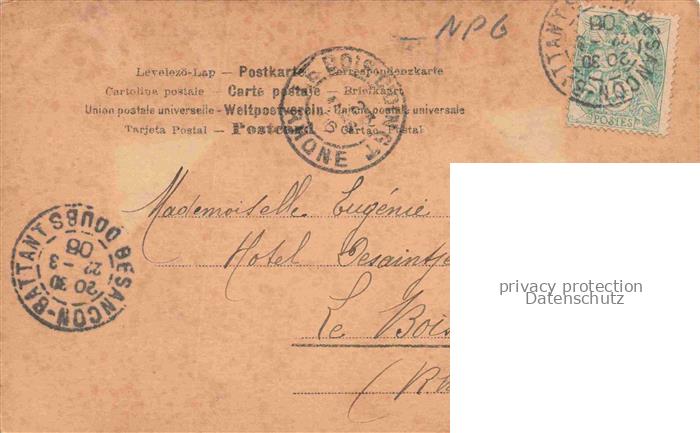 NPG
Levelező-Lap — Postkarte — Correspondenzkarte
Cartolina postale — Carte postale — Briefkaart
Union postale universelle — Weltpostverein — Union postale universale
Tarjeta Postal — Postcard — Cartao Postal
LE BOIS D'OINGT
RHONE
BESANÇON-BATTANT
DOUBS
20 30
22 - 3
08
POSTES
BESANÇON-BATTANT
DOUBS
20 30
22 - 3
08
Mademoiselle Eugénie
Hotel
Le Bois
privacy protection
Datenschutz